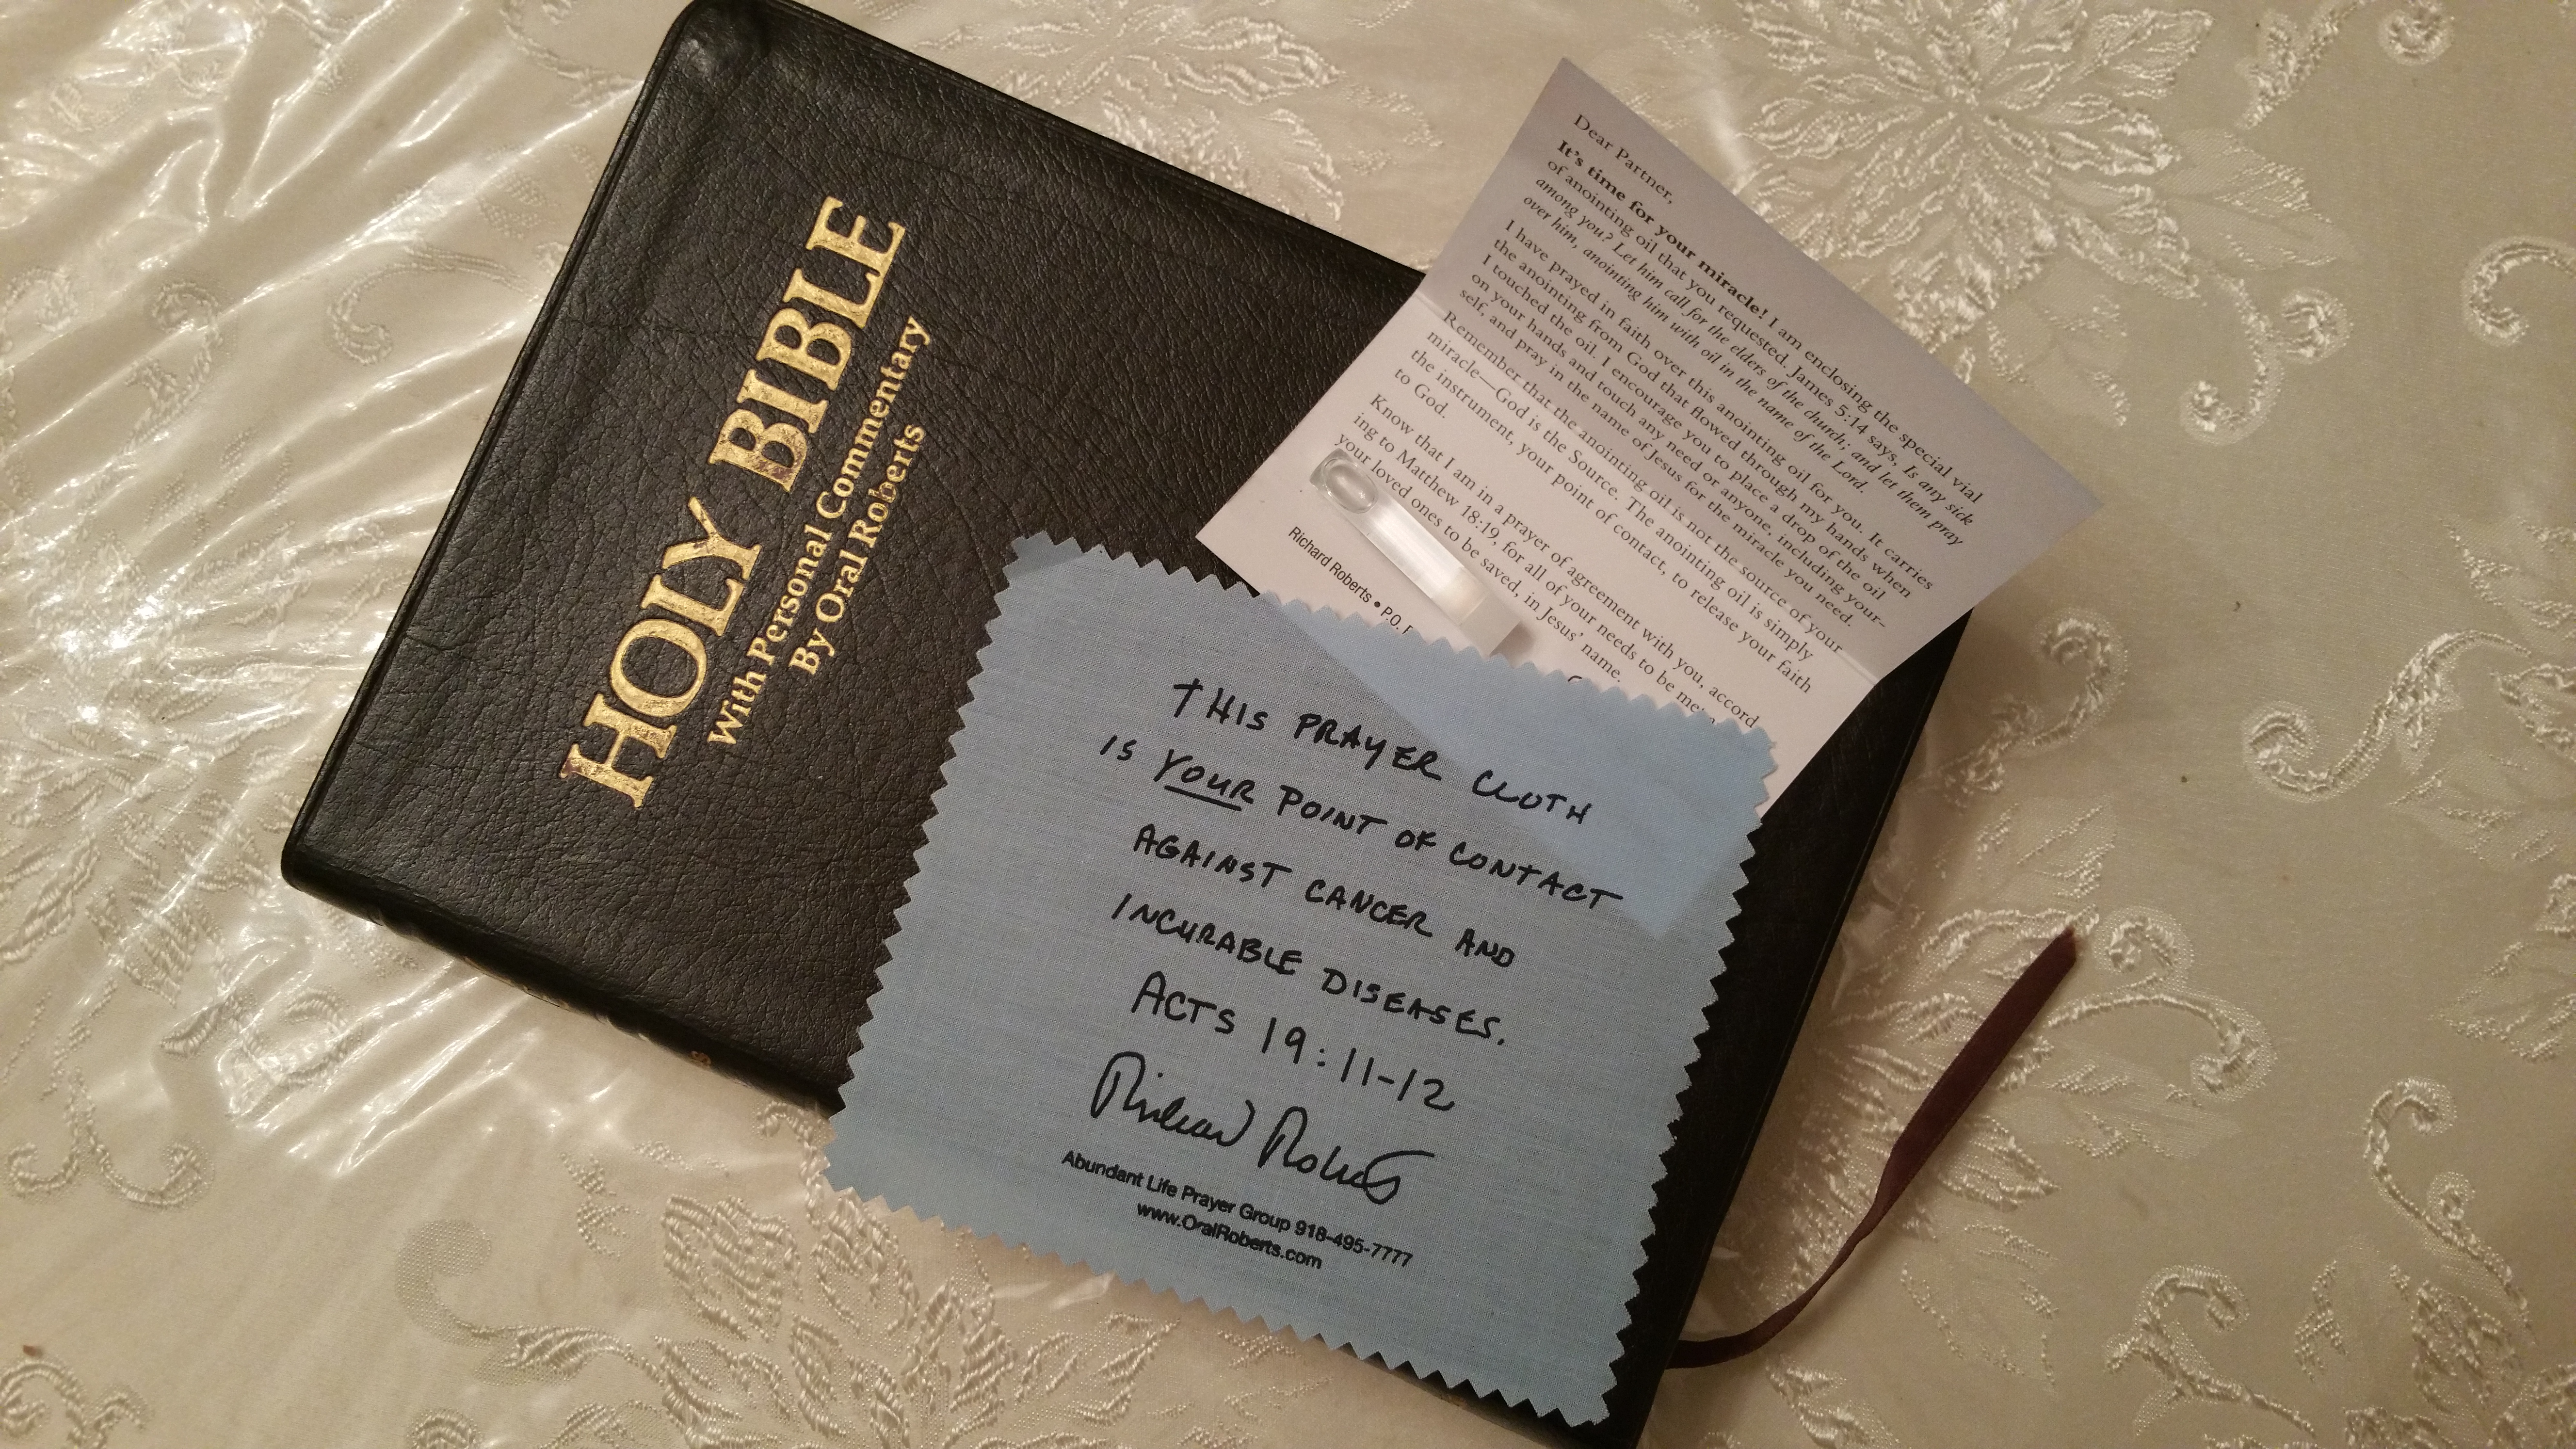 HOLY BIBLE
With Personal Commentary
By Oral Roberts
Dear Partner,
It's time for your miracle! I am enclosing the special vial
of anointing oil that you requested. James 5:14 says, Is any sick
among you? Let him call for the elders of the church; and let them pray
over him, anointing him with oil in the name of the Lord.
I have prayed in faith over this anointing oil for you. It carries
the anointing from God that flowed through my hands when
I touched the oil. I encourage you to place a drop of the oil
on your hands and touch any need or anyone, including your-
self, and pray in the name of Jesus for the miracle you need.
Remember that the anointing oil is not the source of your
miracle—God is the Source. The anointing oil is simply
the instrument, your point of contact, to release your faith
to God.
Know that I am in a prayer of agreement with you, accord
ing to Matthew 18:19, for all of your needs to be met
your loved ones to be saved, in Jesus' name.
Richard Roberts • P.O.
THIS PRAYER CLOTH
IS YOUR POINT OF CONTACT
AGAINST CANCER AND
INCURABLE DISEASES.
ACTS 19:11-12
Richard Roberts
Abundant Life Prayer Group 918-495-7777
www.OralRoberts.com